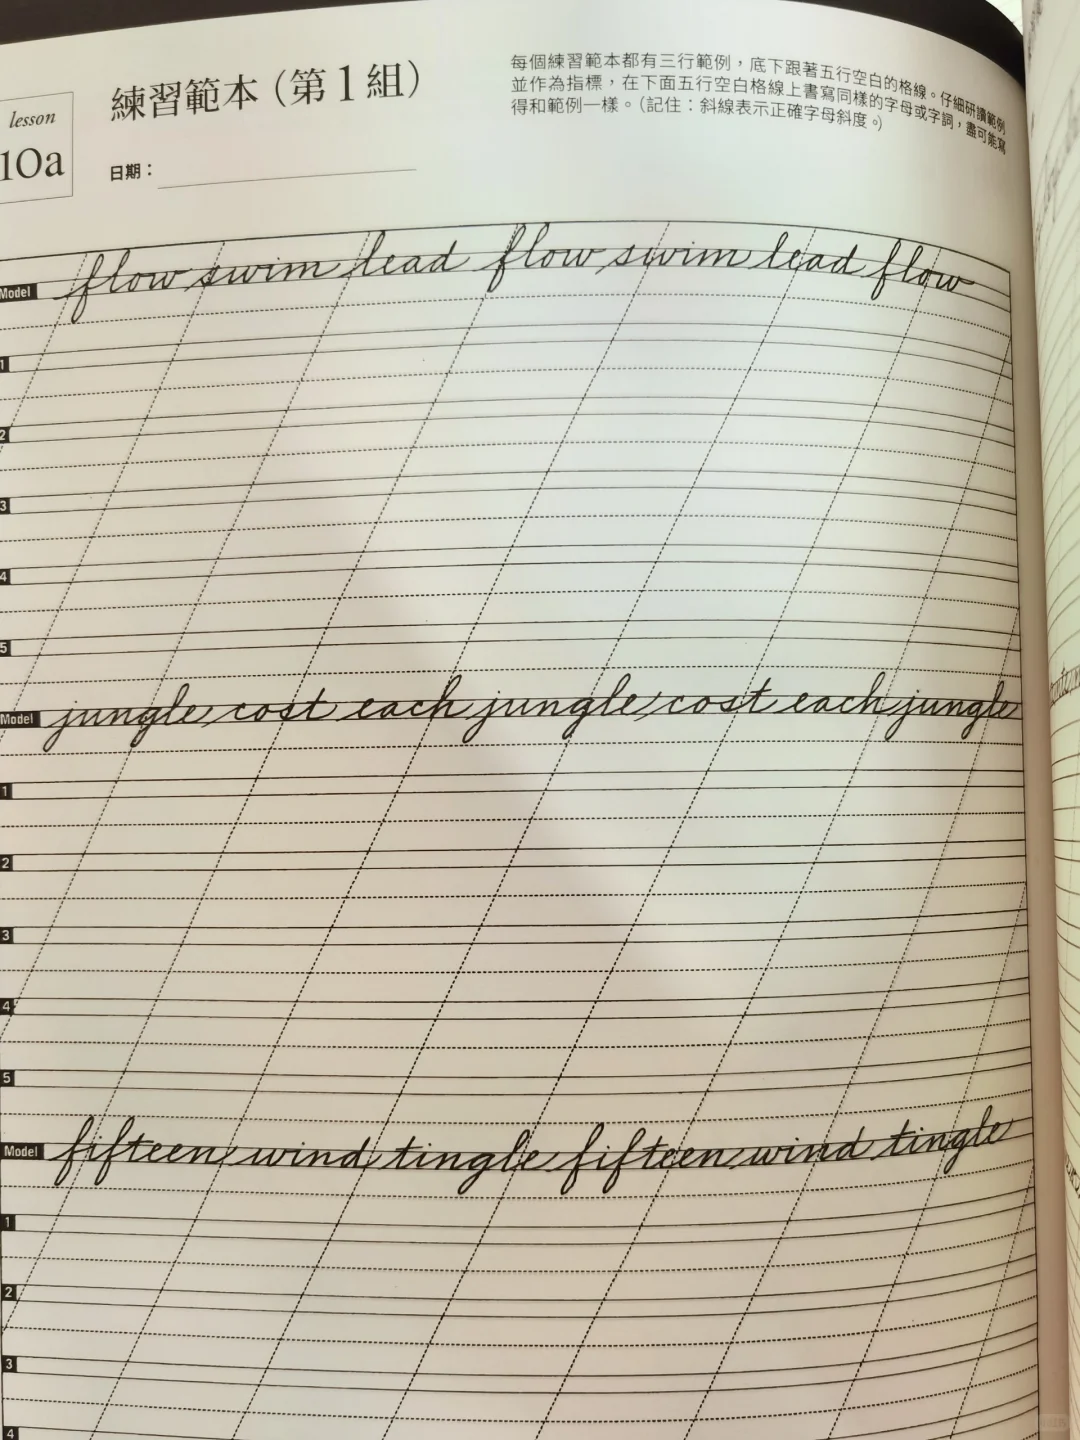 lesson
10a
練習範本（第1組）
日期：
每個練習範本都有三行範例，底下跟著五行空白的格線。仔細研讀範例
並作為指標，在下面五行空白格線上書寫同樣的字母或字詞，盡可能寫
得和範例一樣。（記住：斜線表示正確字母斜度。）
Model flow swim lead flow swim lead flow
1
2
3
4
5
Model jungle cost each jungle cost each jungle
1
2
3
4
5
Model fifteen wind tingle fifteen wind tingle
1
2
3
4